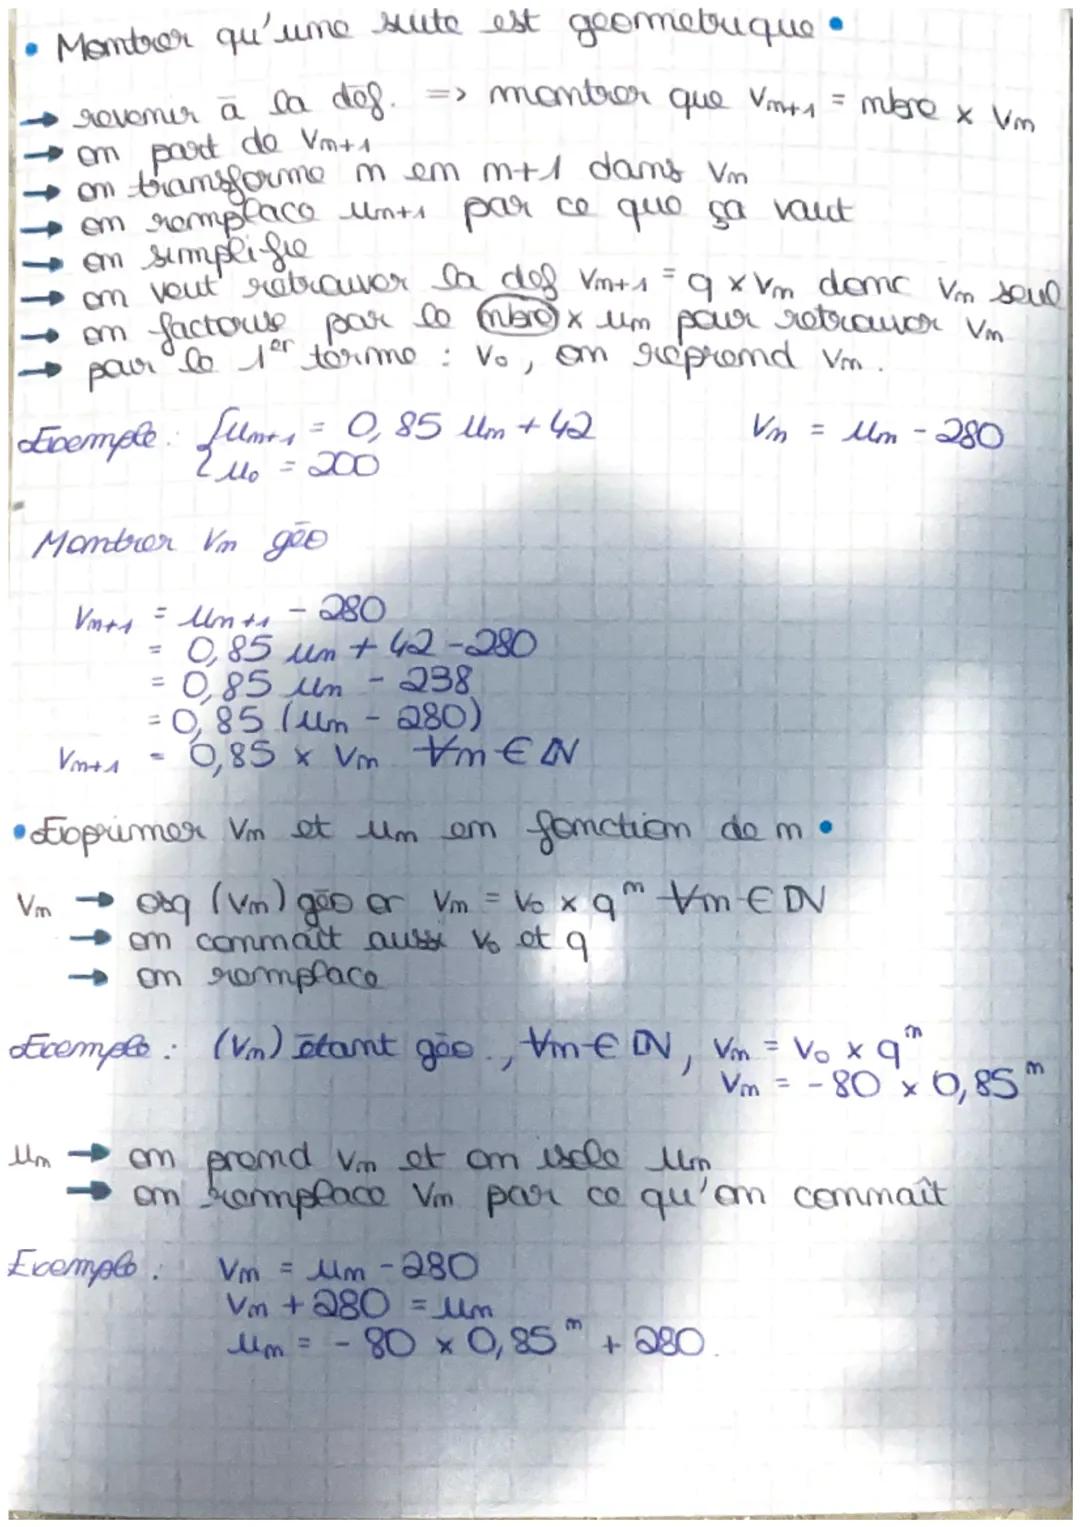 • Montrer qu'une suite est géométrique •
→ revenir à la déf. => montrer que Vn+1 = nbre x Vn
→ on part de Vn+1
→ on transforme n en n+1 dans Vn
→ on remplace un+1 par ce que ça vaut
→ on simplifie
→ on veut retrouver la déf Vn+1 = q x Vn donc Vn seul
→ on factorise par le nbre x un pour retrouver Vn
→ pour le 1er terme : V0, on reprend Vn.
Exemple : { un+1 = 0,85 un + 42 Vn = un - 280
u0 = 200
Montrer Vn géo
Vn+1 = un+1 - 280
= 0,85 un + 42 - 280
= 0,85 un - 238
= 0,85 (un - 280)
Vn+1 = 0,85 x Vn ∀n ∈ ℕ
• Exprimer Vn et un en fonction de n •
Vn → osq (Vn) géo or Vn = V0 x qⁿ ∀n ∈ ℕ
→ on connaît aussi V0 et q
→ on remplace
Exemple : (Vn) étant géo., ∀n ∈ ℕ, Vn = V0 x qⁿ
Vn = - 80 x 0,85ⁿ
un → on prend Vn et on isole un
→ on remplace Vn par ce qu'on connaît
Exemple : Vn = un - 280
Vn + 280 = un
un = - 80 x 0,85ⁿ + 280.